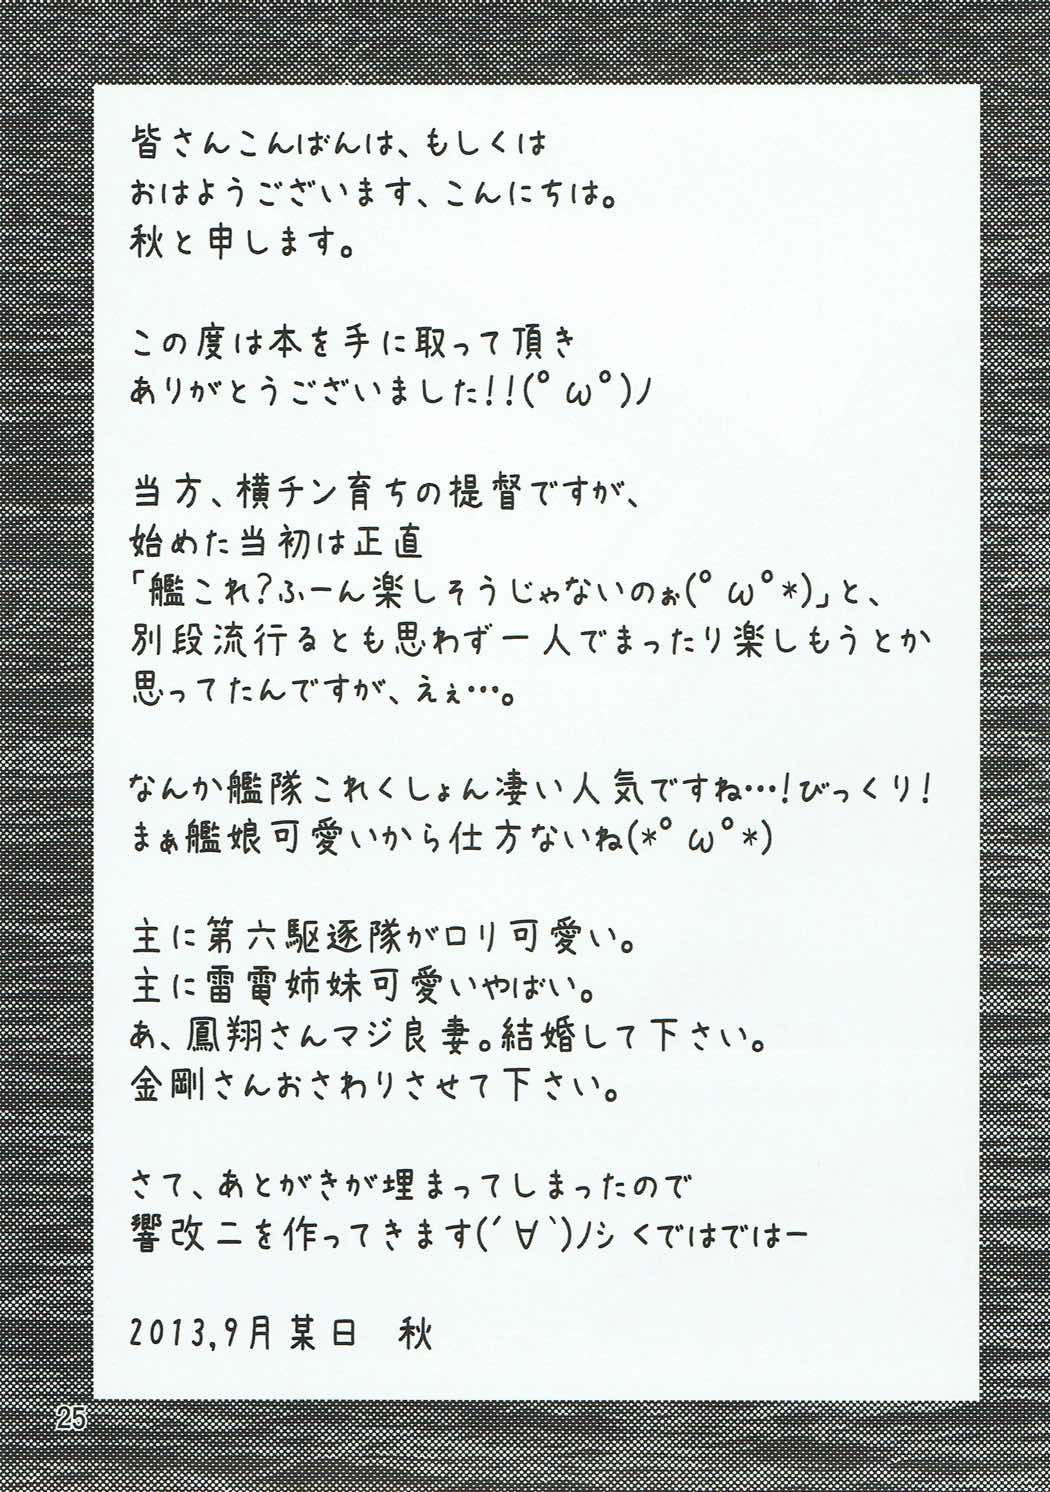 皆さんこんばんは、もしくは
おはようございます、こんにちは。
秋と申します。
この度は本を手に取って頂き
ありがとうございました!!(ﾟωﾟ)ノ
当方、横チン育ちの提督ですが、
始めた当初は正直
「艦これ?ふーん楽しそうじゃないのぉ(ﾟωﾟ*)」と、
別段流行るとも思わず一人でまったり楽しもうとか
思ってたんですが、えぇ…。
なんか艦隊これくしょん凄い人気ですね…!びっくり!
まぁ艦娘可愛いから仕方ないね(*ﾟωﾟ*)
主に第六駆逐隊がロリ可愛い。
主に雷電姉妹可愛いやばい。
あ、鳳翔さんマジ良妻。結婚して下さい。
金剛さんおさわりさせて下さい。
さて、あとがきが埋まってしまったので
響改二を作ってきます(´∀`)ノシ くではではー
2013,9月某日 秋
25